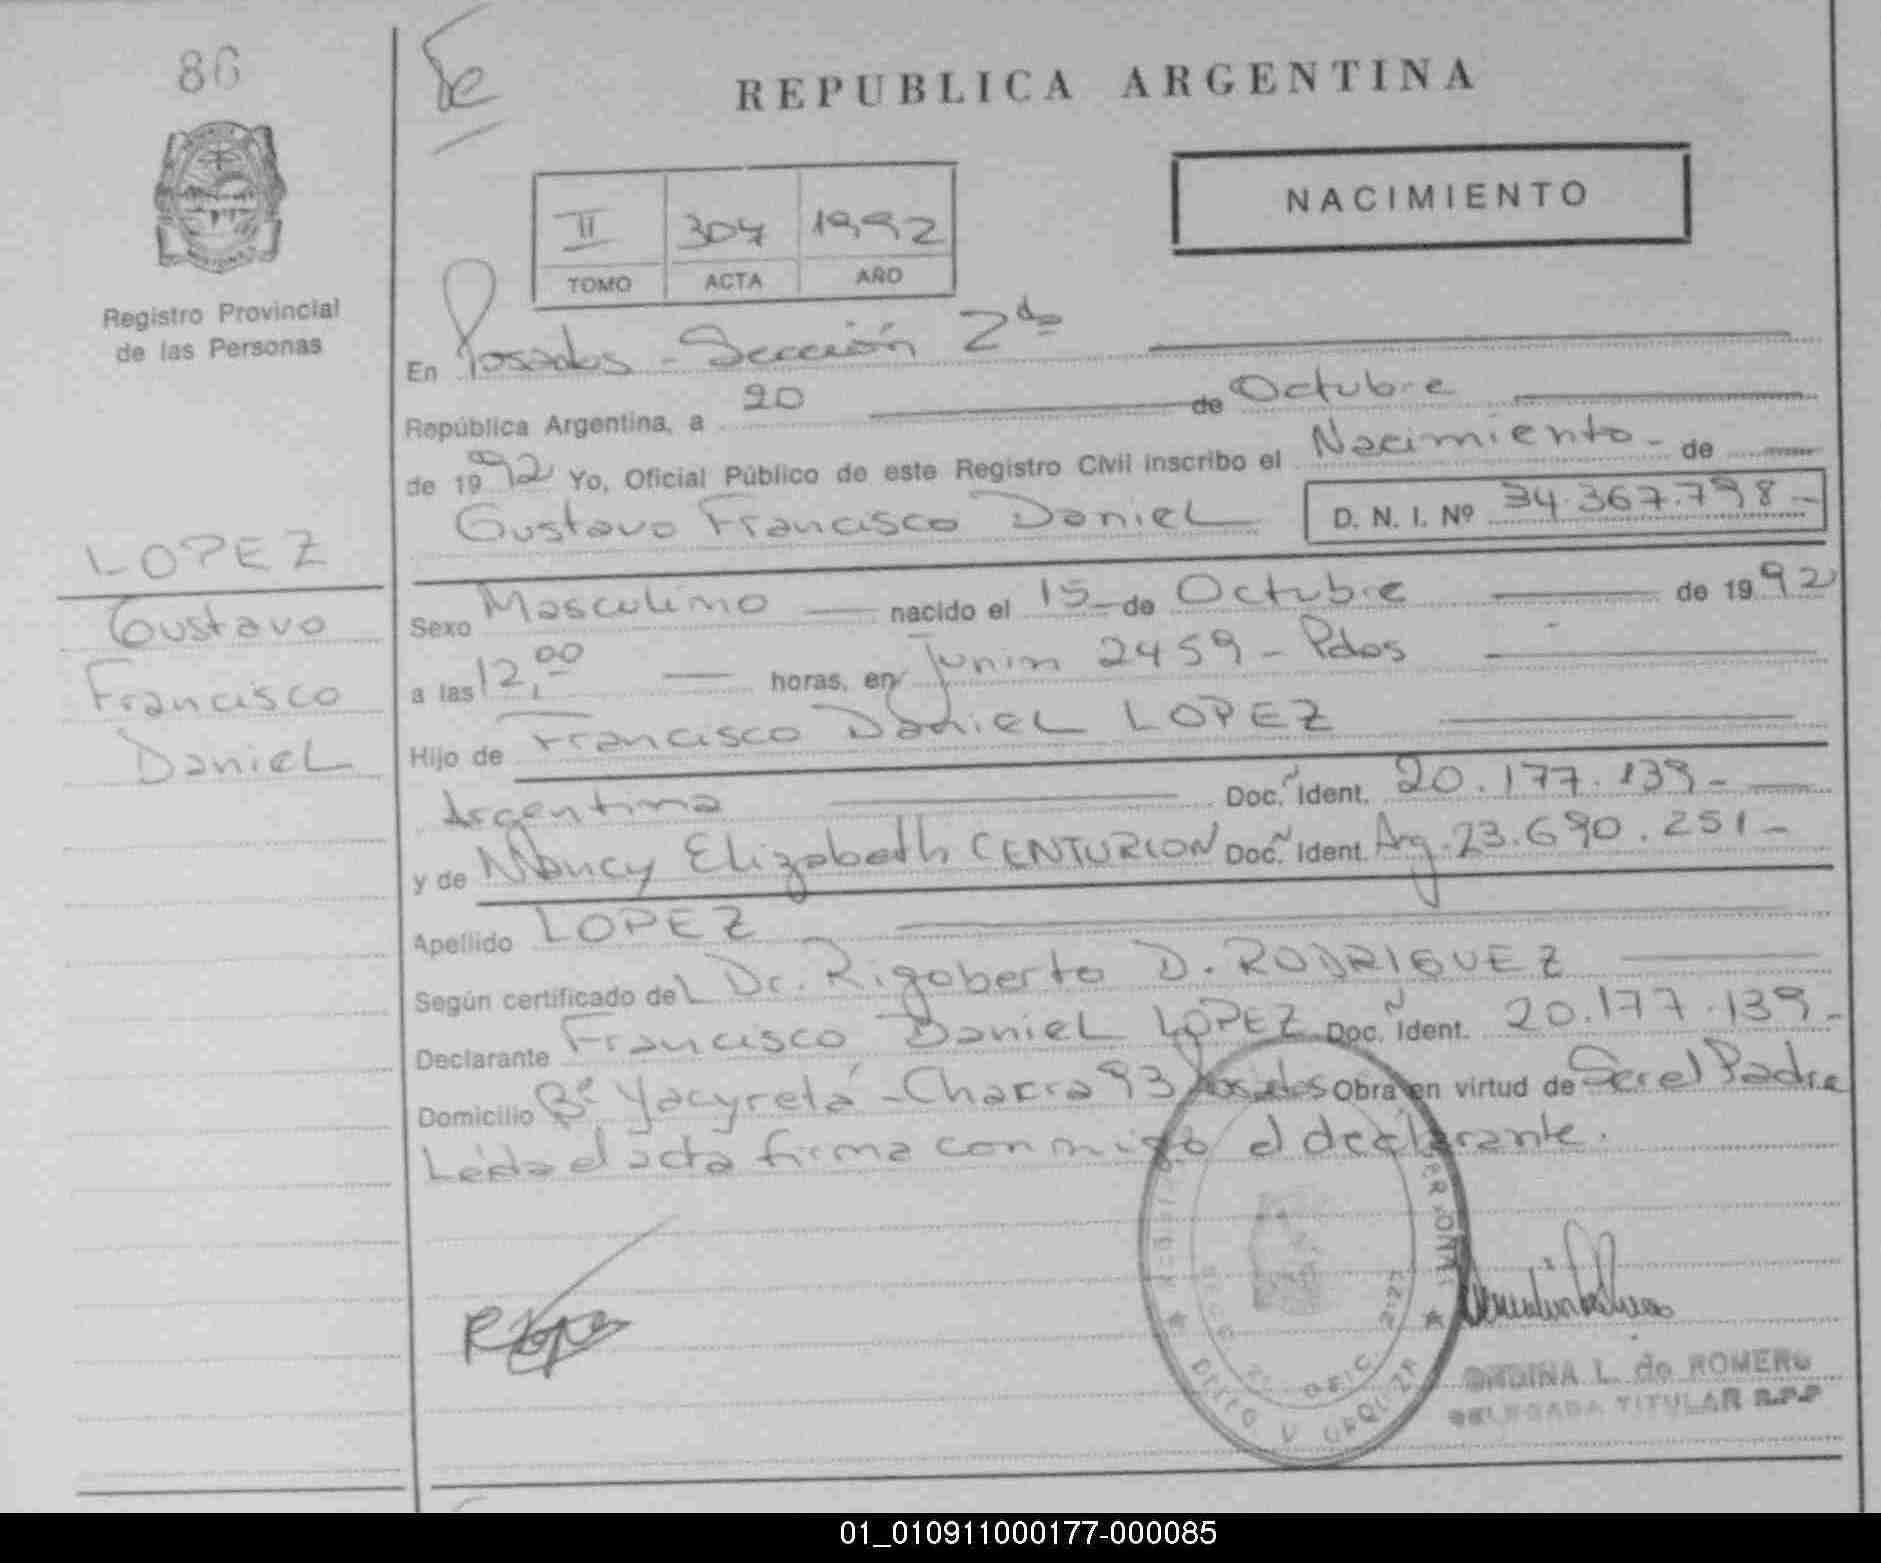 86
Registro Provincial
de las Personas
LOPEZ
Gustavo
Francisco
Daniel
REPUBLICA ARGENTINA
NACIMIENTO
II 304 1992
TOMO ACTA AÑO
En Posadas - Sección 2da
República Argentina, a 20 de Octubre
de 1992 Yo, Oficial Público de este Registro Civil inscribo el Nacimiento - de
Gustavo Francisco Daniel D. N. I. Nº 34.367.798 -
Sexo Masculino nacido el 15 - de Octubre de 1992
a las 12,00 horas, en Junin 2459 - Pdas
Hijo de Francisco Daniel LOPEZ
Argentina Doc. Ident. 20.177.139 -
y de Nancy Elizabeth CENTURION Doc. Ident. Arg. 23.690.251 -
Apellido LOPEZ
Según certificado del Dr. Rigoberto D. RODRIGUEZ
Declarante Francisco Daniel LOPEZ Doc. Ident. 20.177.139 -
Domicilio Bº Yacyretá - Chacra 93 Posadas Obra en virtud de Ser el Padre
Leida el acta firma conmigo el declarante.
DELEGADA TITULAR R.P.P
L. de ROMERO
01_010911000177-000085